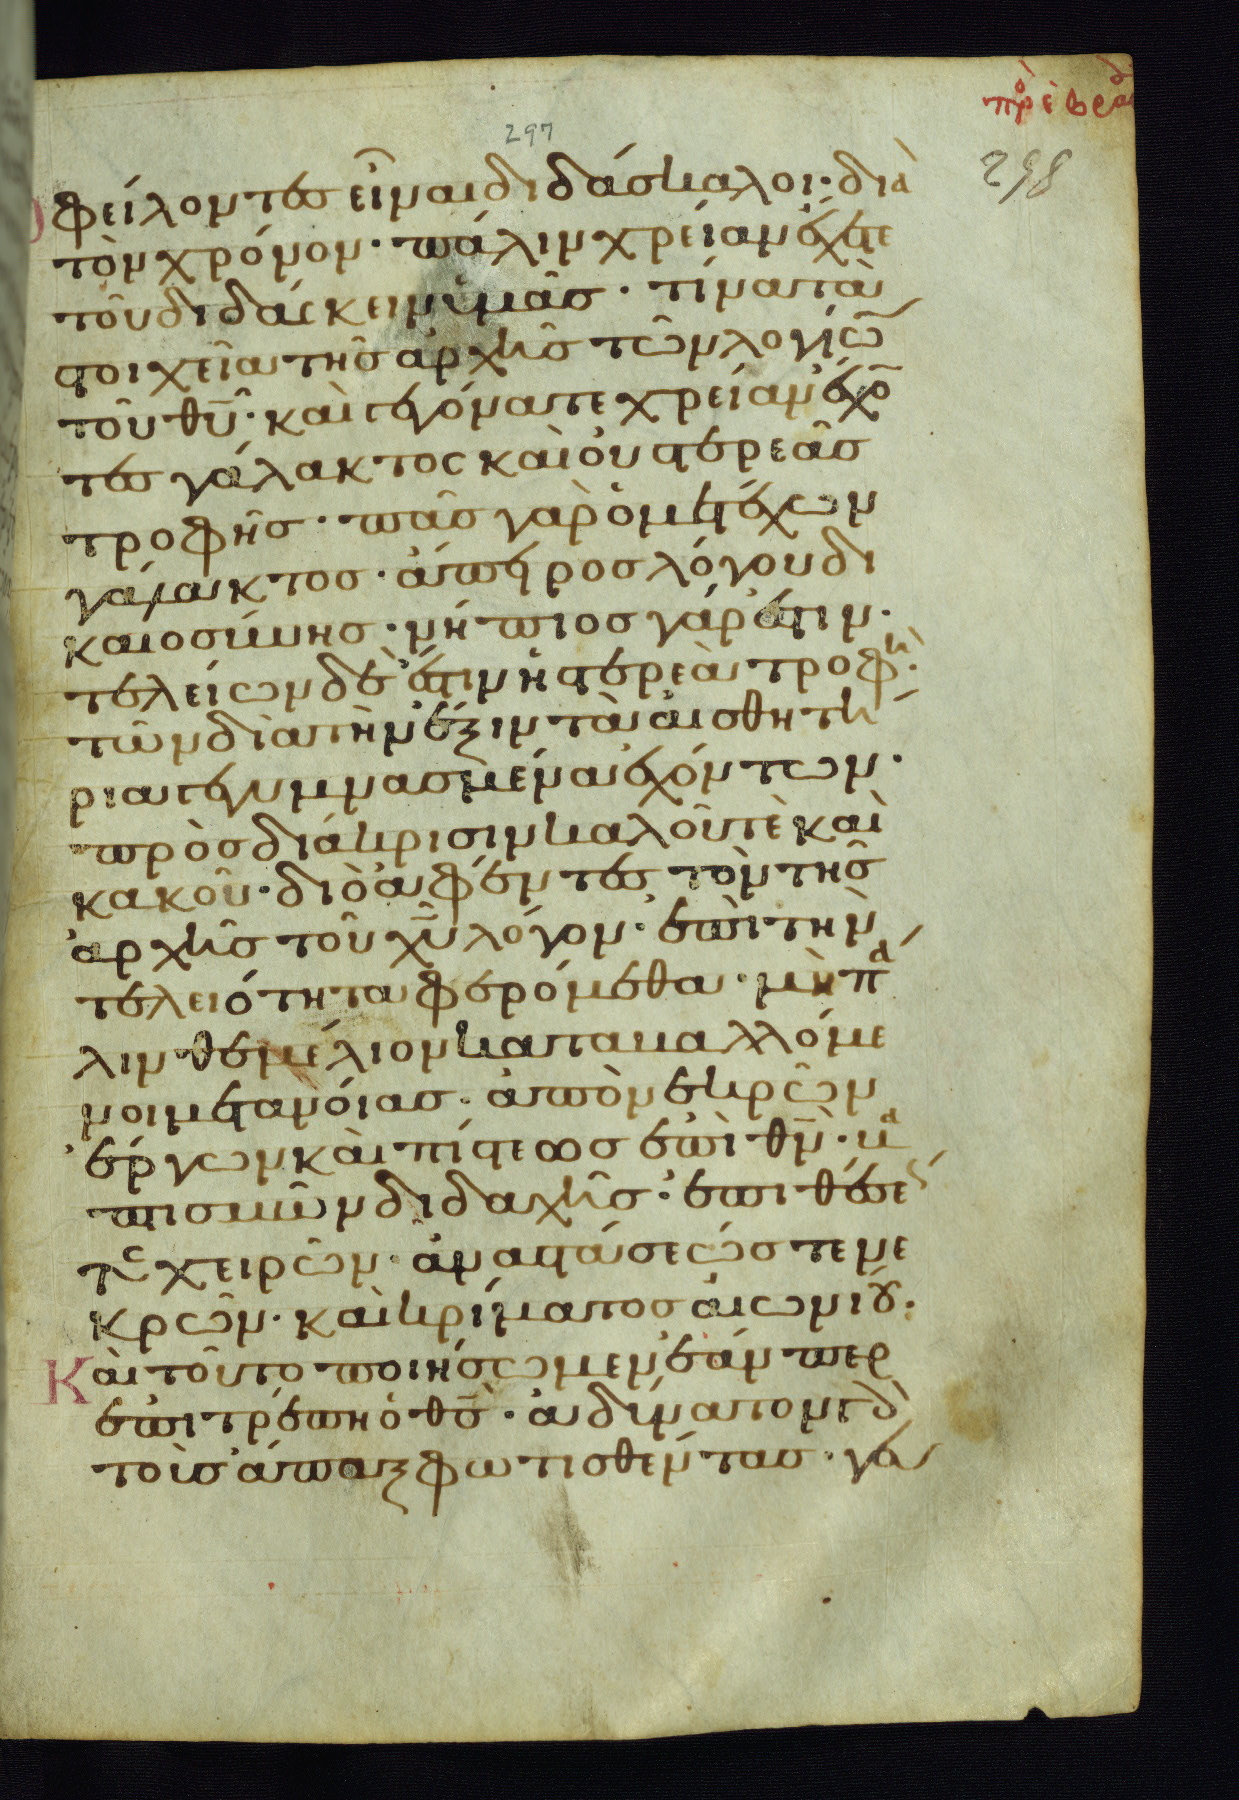 297
298
ὀφείλοντες εἶναι διδάσκαλοι· διὰ
τὸν χρόνον· πάλιν χρείαν ἔχετε
τοῦ διδάσκειν ὑμᾶς· τίνα τὰ
στοιχεῖα τῆς ἀρχῆς τῶν λογίω̄
τοῦ θ̄ῡ· καὶ γεγόνατε χρείαν ἔχο̄
τες γάλακτος καὶ οὐ στερεᾶς
τροφῆς· πᾶς γὰρ ὁ μετέχων
γάλακτος· ἄπειρος λόγου δι
καιοσύνης· νήπιος γάρ ἐστιν·
τελείων δὲ ἐστιν ἡ στερεὰ τροφή·
τῶν διὰ τὴν ἕξιν τὰ αἰσθητή
ρια γεγυμνασμένα ἐχόντων·
πρὸς διάκρισιν καλοῦ τὲ καὶ
κακοῦ· διὸ ἀφέντες τὸν τῆς
ἀρχῆς τοῦ χ̄ῡ λόγον· ἐπὶ τὴν
τελειότητα φερόμεθα· μὴ πά
λιν θεμέλιον καταβαλλόμε
νοι μετανοίας· ἀπὸ νεκρῶν
ἔργων καὶ πίστεως ἐπὶ θ̄ν̄· βα
πτισμῶν διδαχῆς· ἐπιθέσε
ώς τε χειρῶν· ἀναστάσεώς τε νε
κρῶν· καὶ κρίματος αἰωνίου·
Καὶ τοῦτο ποιήσωμεν ἐάν περ
ἐπιτρέπῃ ὁ θ̄ς̄· ἀδύνατον γὰρ
τοὺς ἅπαξ φωτισθέντας· γευ